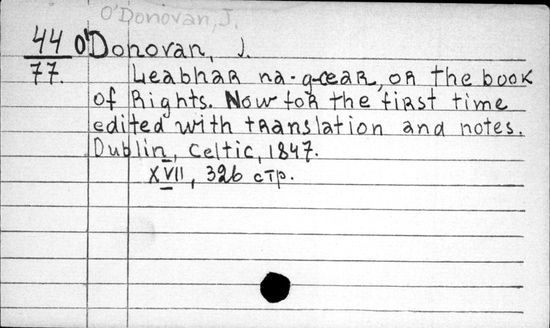 O'Donovan, J.
44 O'Donovan, J.
77. Leabhar na-g-cear, or the book
of Rights. Now for the first time
edited with translation and notes.
Dublin, Celtic, 1847.
XVII, 326 стр.